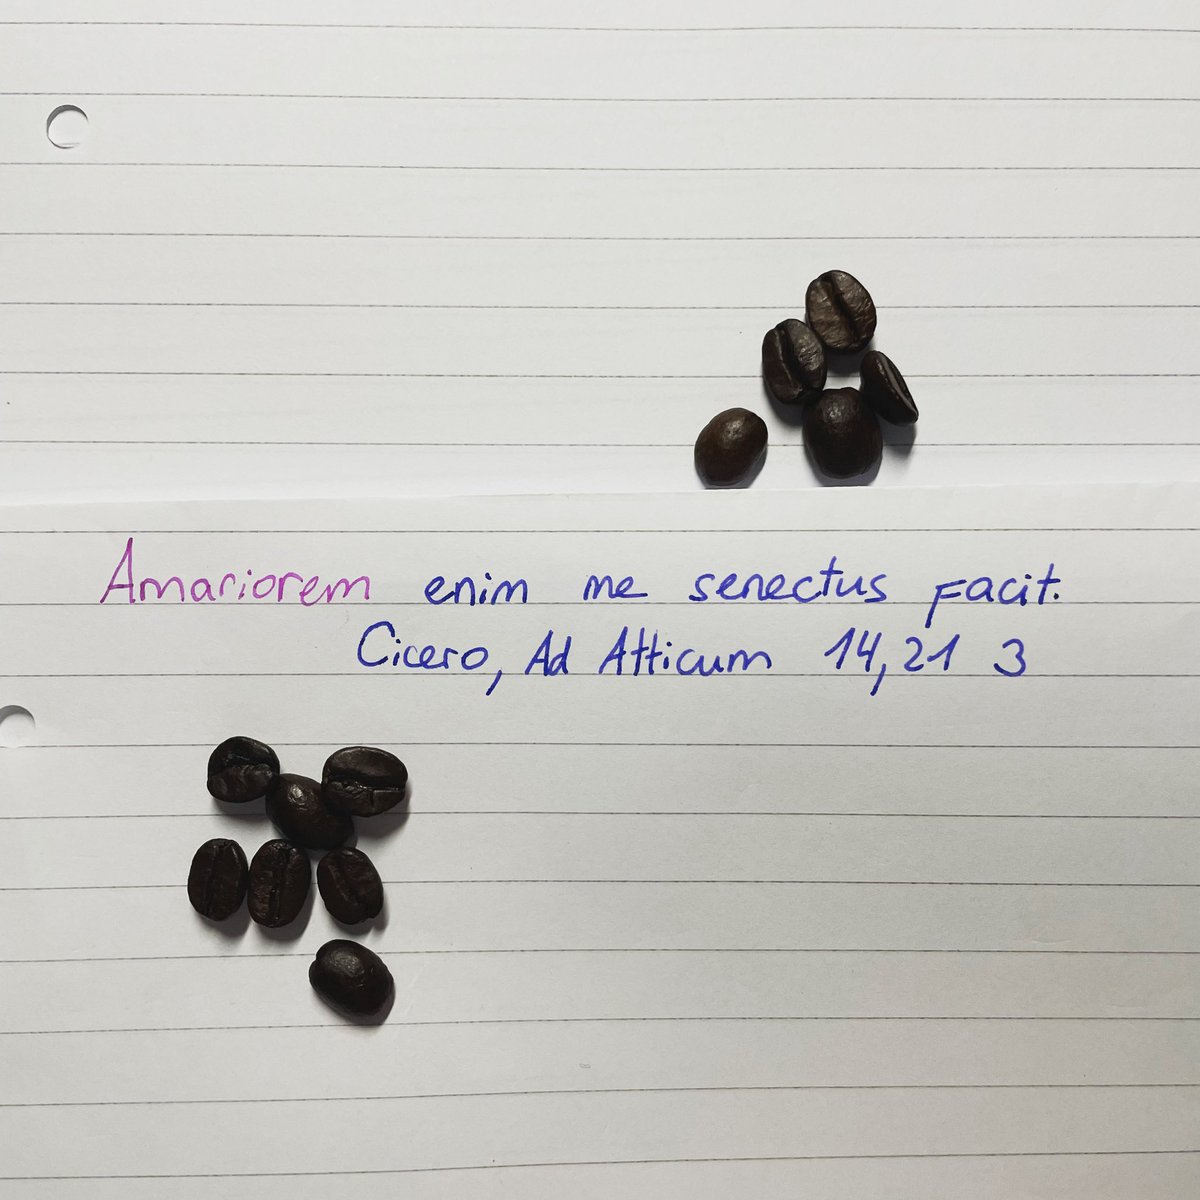 Amariorem enim me senectus facit.
Cicero, Ad Atticum 14,21 3